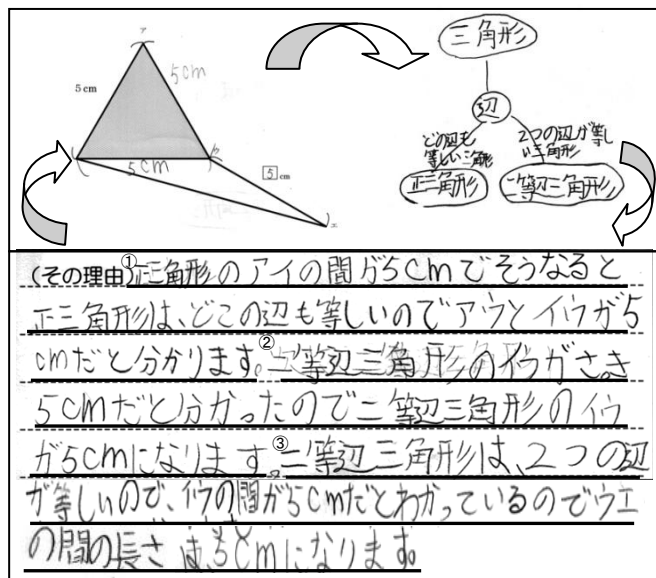 ア
5cm
5cm
イ
5cm
ウ
5 cm
エ
三角形
辺
どの辺も
等しい三角形
2つの辺が等し
い三角形
正三角形
二等辺三角形
(その理由)①正三角形のアイの間が5cmでそうなると
正三角形は、どこの辺も等しいのでアウとイウが5
cmだと分かります。②二等辺三角形のイウがさっき
5cmだと分かったので二等辺三角形のイウ
が5cmになります。③二等辺三角形は、2つの辺
が等しいので、イウの間が5cmだとわかっているのでウエ
の間の長さは、5cmになります。